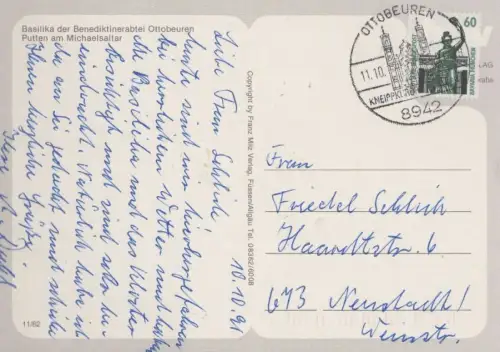 Basilika der Benediktinerabtei Ottobeuren
Putten am Michaelsaltar
10.10.91
Liebe Frau Schlich
heute sind wir hierher gefahren
bei herrlichem Wetter und haben
die Basilika und das Kloster
besichtigt und sind sehr be-
eindruckt. Natürlich habe ich
da an Sie gedacht und schicke
Ihnen herzliche Grüße
Ihre
11/82
Copyright by Franz Milz Verlag, Füssen/Allgäu Tel. 08362/6008
OTTOBEUREN
11.10.
KNEIPPKURORT
8942
60
Frau
Friedel Schlich
Haardtstr. 6
673 Neustadt/
Weinstr.